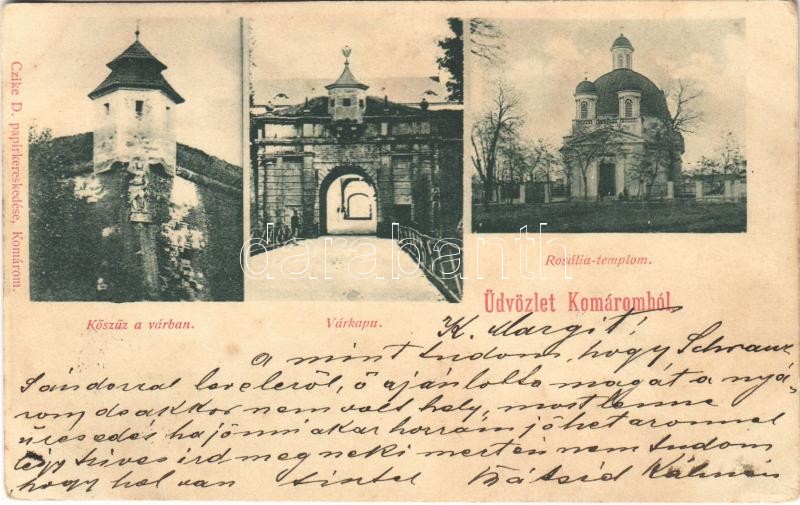 Czike D. papirkereskedése, Komárom.
Kőszűz a várban.
Várkapu.
Rosália-templom.
Üdvözlet Komáromból
darabanth.com
K. Margit!
a mint tudom, hogy Schwarz
Sándorral leveleről, ő ajánlotta magát a nyá-
ron de akkor nem volt hely, most lenne
üresedés ha jönni akar hozzám jöhet azonnal
légy szives ird meg neki mert én nem tudom
hogy hol van
Kálmán